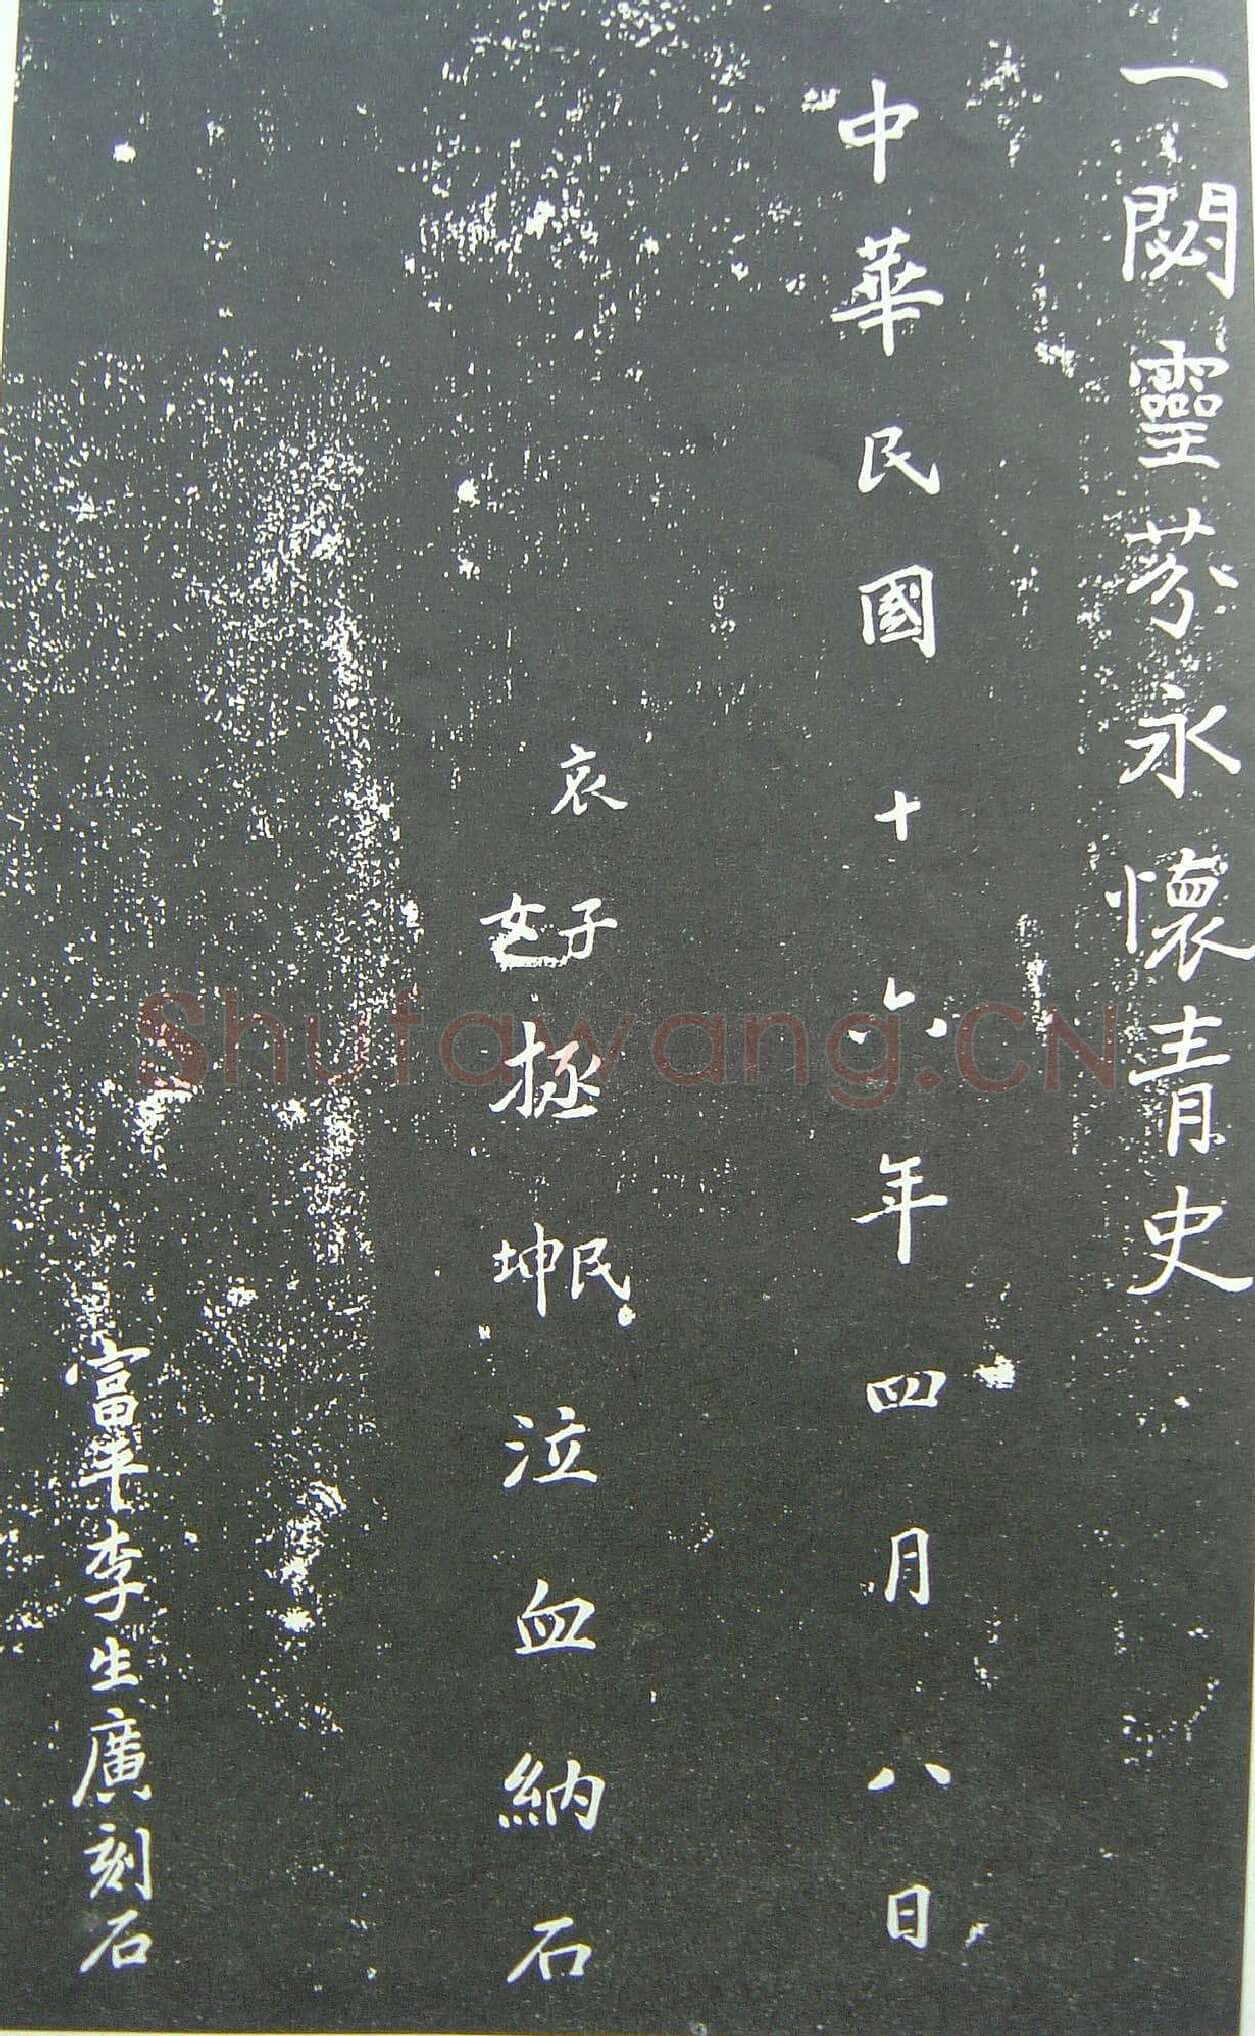 一閟靈芬永懷青史
中華民國十六年四月八日
哀子女拯民坤泣血納石
富平李生廣刻石
Shufawang.CN